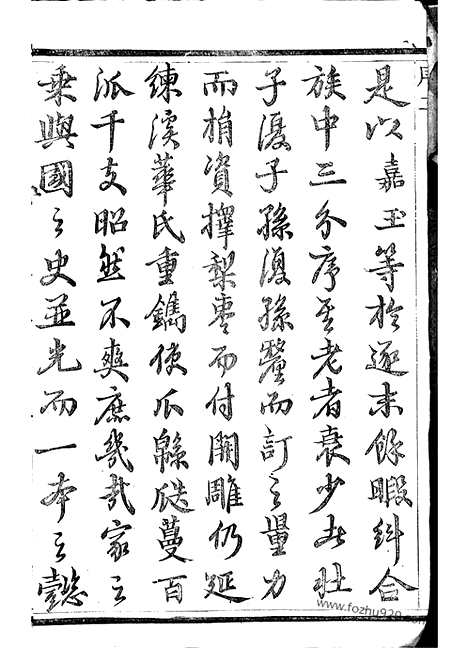 是以嘉玉等於逐末餘暇糾合
族中三分序其老者衰少者壯
子復子孫復孫釐而訂之量力
而捐資擇梨棗而付開雕仍延
練溪華氏重鐫使瓜緜瓞蔓百
派千支昭然不爽庶幾哉家之
乘與國之史並光而一本之懿
www.fozhu920.com